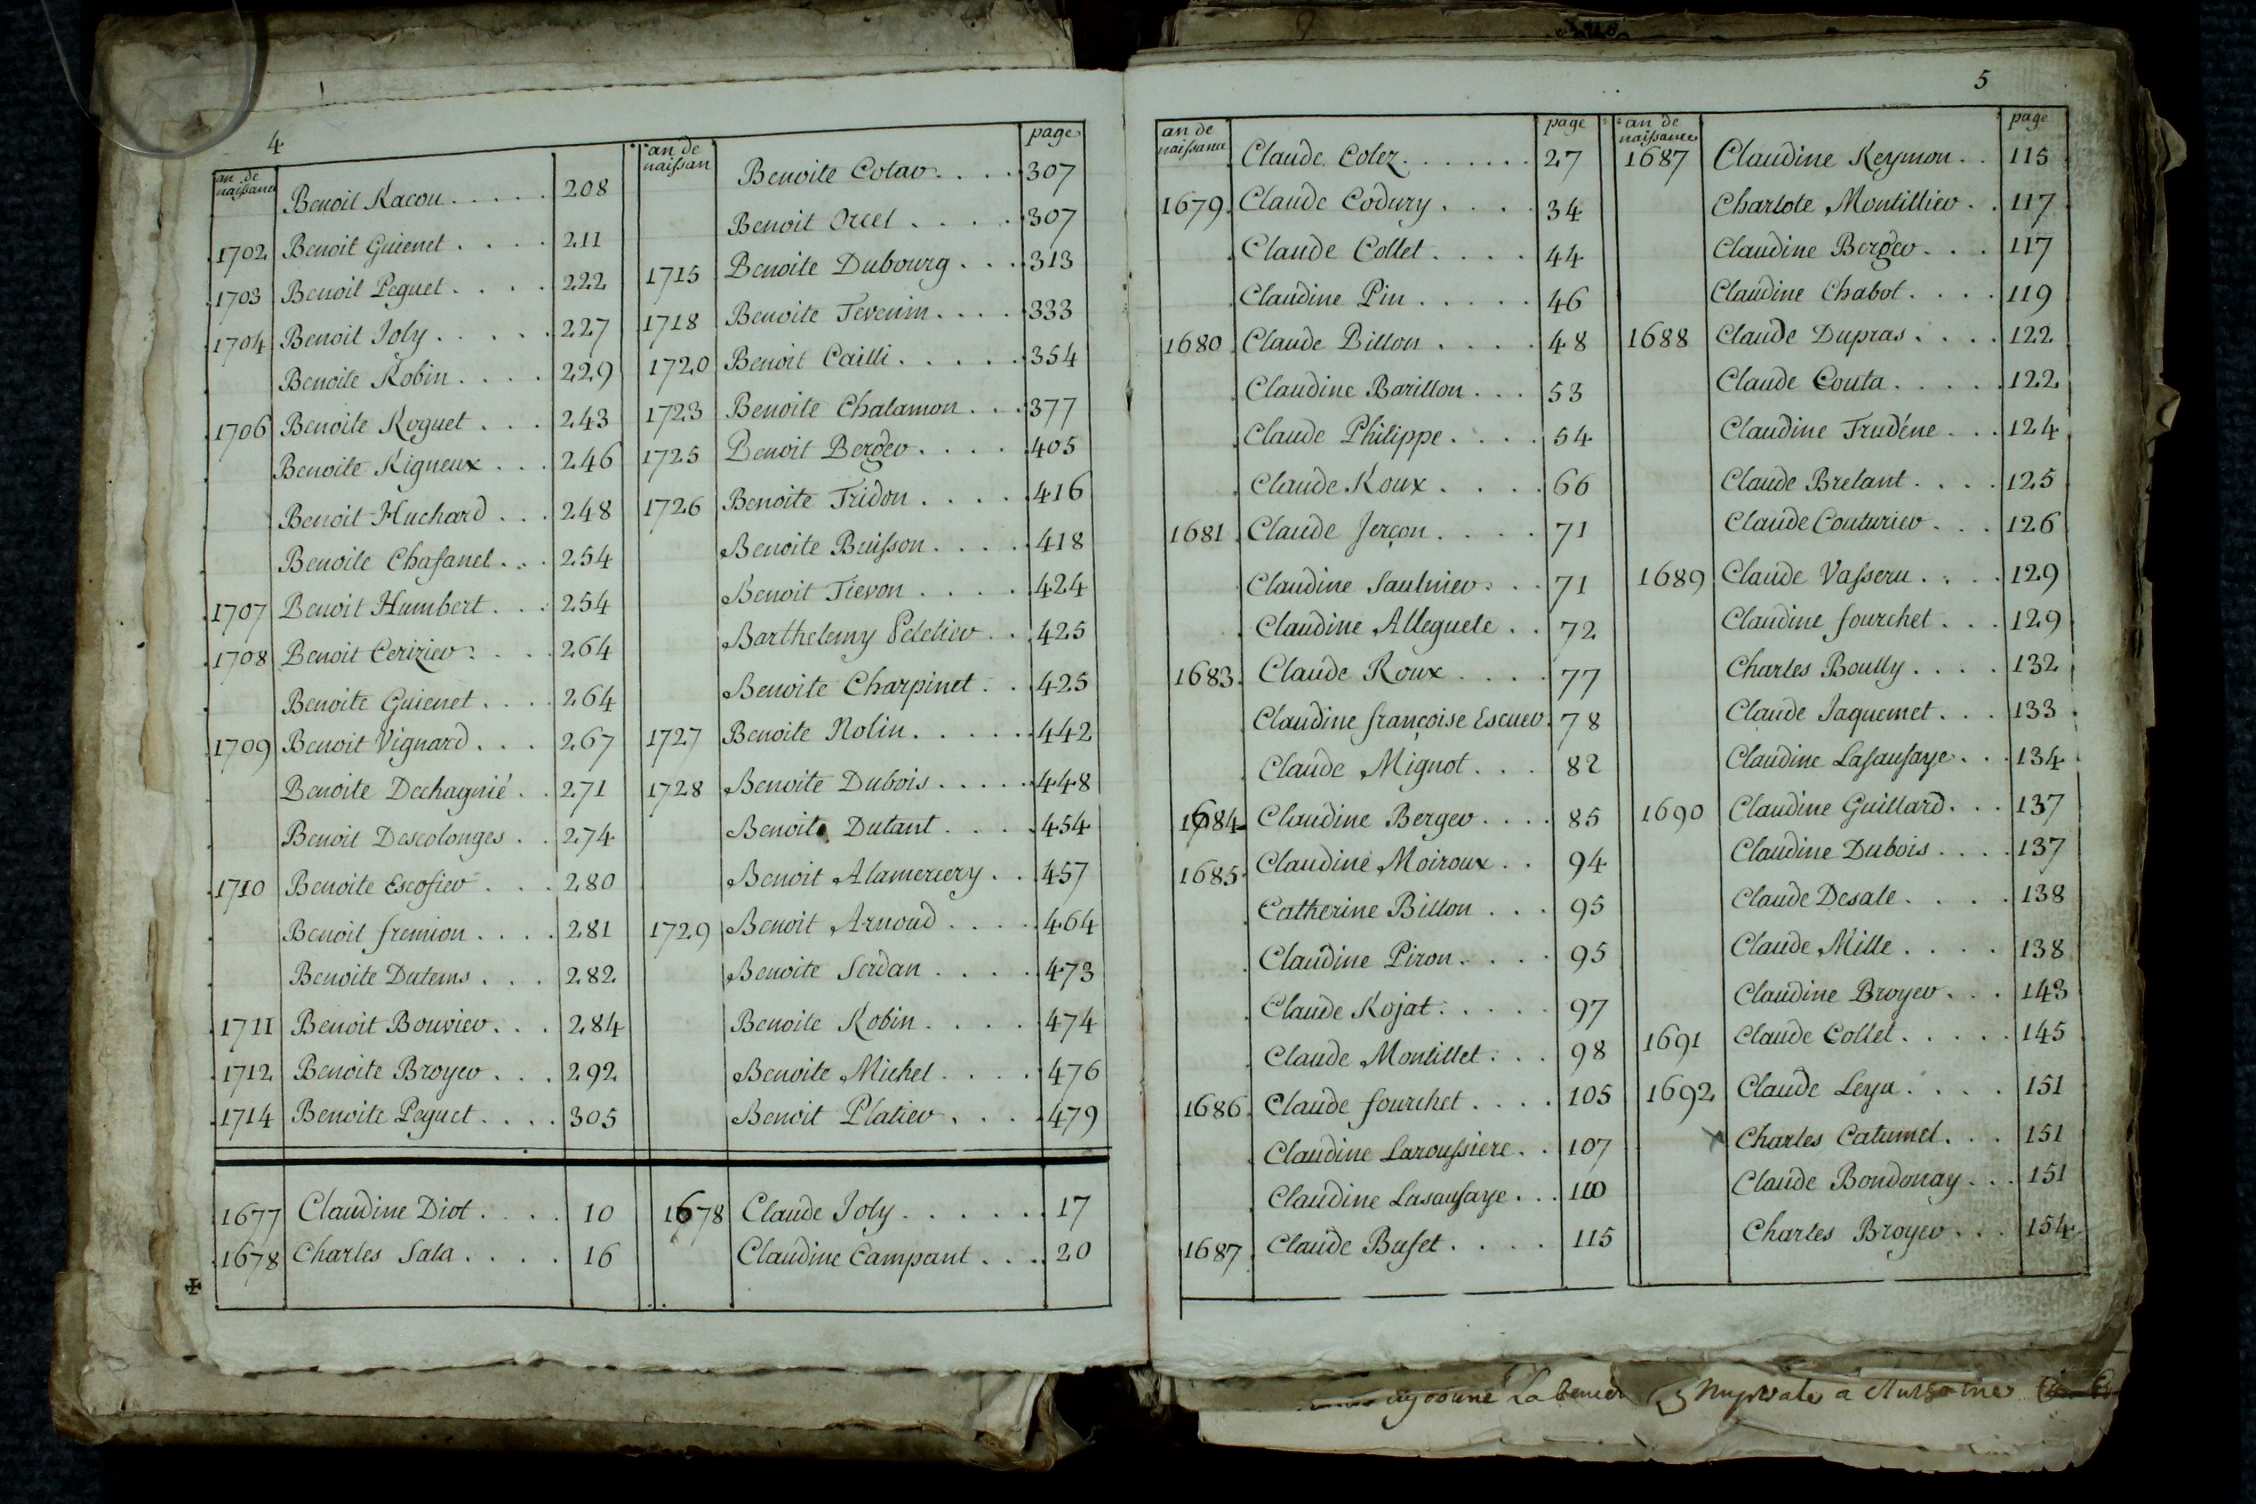 4
an de naissance page
Benoit Racon . . . . . 208
1702 Benoit Guienet . . . . 211
1703 Benoit Peguet . . . . 222
1704 Benoit Joly . . . . . 227
Benoite Robin . . . . 229
1706 Benoite Roguet . . . 243
Benoite Rigneux . . . 246
Benoit Huchard . . . 248
Benoite Chasanel . . . 254
1707 Benoit Humbert . . . 254
1708 Benoit Cerizier . . . 264
Benoite Guienet . . . . 264
1709 Benoit Vignard . . . 267
Benoite Dechagnié . . 271
Benoit Descolonges . . 274
1710 Benoite Escofier . . . 280
Benoit fremion . . . . 281
Benoite Dutems . . . 282
1711 Benoit Bouvier . . . 284
1712 Benoite Broyer . . . 292
1714 Benoite Peguet . . . . 305
1677 Claudine Diot . . . . 10
1678 Charles Sala . . . . 16
an de naissan page
Benoite Colar . . . . 307
Benoit Orcel . . . . . 307
1715 Benoite Dubourg . . . 313
1718 Benoite Tevenin . . . . 333
1720 Benoit Cailli . . . . . 354
1723 Benoite Chalamon . . . 377
1725 Benoit Berger . . . . 405
1726 Benoite Tridon . . . . 416
Benoite Buisson . . . . 418
Benoit Tievon . . . . . 424
Barthelemy Peletier . . 425
Benoite Charpinet . . 425
1727 Benoite Nolin . . . . . 442
1728 Benoite Dubois . . . . . 448
Benoit Dutant . . . . 454
Benoit Alamerciery . . 457
1729 Benoit Arnoud . . . . 464
Benoite Serdan . . . . 473
Benoite Robin . . . . 474
Benoite Michel . . . . 476
Benoit Platier . . . . 479
1678 Claude Joly . . . . . . 17
Claudine Campant . . . 20
5
an de naissance page
Claude Colez . . . . . . . 27
1679 Claude Codury . . . . 34
Claude Collet . . . . 44
Claudine Pin . . . . . 46
1680 Claude Billon . . . . 48
Claudine Barillon . . . 53
Claude Philippe . . . . 54
Claude Roux . . . . 66
1681 Claude Jerçon . . . . 71
Claudine Saulnier . . . 71
Claudine Alleguete . . 72
1683 Claude Roux . . . . 77
Claudine françoise Escuer 78
Claude Mignot . . . 82
1684 Claudine Berger . . . . 85
1685 Claudine Moiroux . . 94
Catherine Billon . . . 95
Claudine Piron . . . . 95
Claude Rojat . . . . . 97
Claude Montillet . . . 98
1686 Claude fourchet . . . . 105
Claudine Laroussiere . . 107
Claudine Lasausaye . . . 110
1687 Claude Bufet . . . . 115
an de naissance page
1687 Claudine Reymon . . 115
Charlote Montillier . . 117
Claudine Berger . . . 117
Claudine Chabot . . . . 119
1688 Claude Dupras . . . . 122
Claude Couta . . . . . 122
Claudine Trudéne . . . 124
Claude Bretant . . . . 125
Claude Couturier . . . 126
1689 Claude Vasseru . . . . 129
Claudine fourchet . . . 129
Charles Boully . . . . 132
Claude Jaquemet . . . 133
Claudine Lasausaye . . . 134
1690 Claudine Guillard . . . 137
Claudine Dubois . . . . 137
Claude Desale . . . . 138
Claude Mille . . . . 138
Claudine Broyer . . . 143
1691 Claude Collet . . . . . 145
1692 Claude Leya . . . . 151
Charles Catumel . . . 151
Claude Bondonay . . . 151
Charles Broyer . . . 154